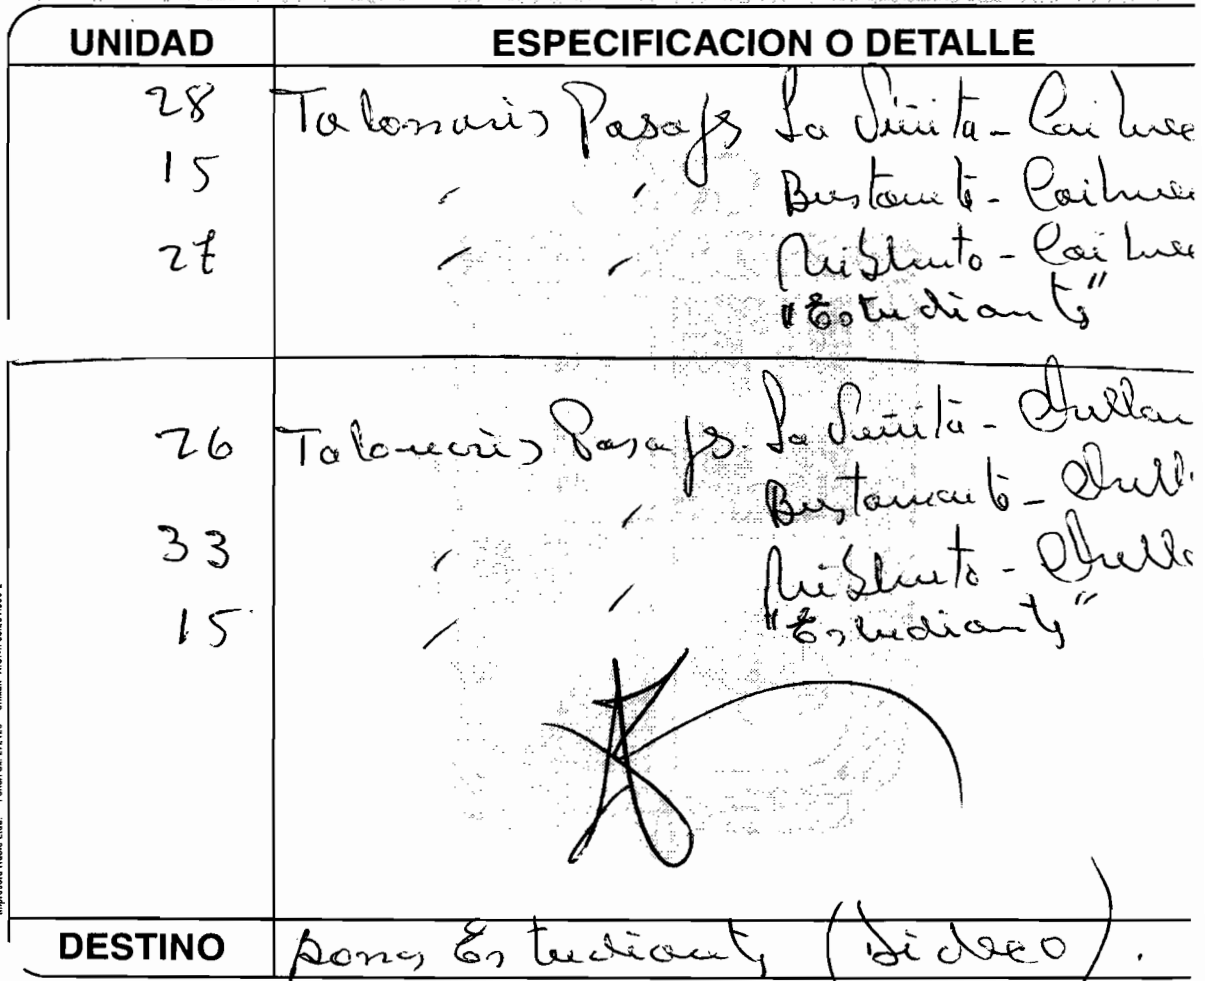 UNIDAD ESPECIFICACION O DETALLE
28 Talonarios Pasajes La Viñita - Coihuec
15 " " Bustamante - Coihuec
27 " " Coihuec
"Estudiantes"
26 Talonarios Pasajes La Viñita - Chillan
Bustamante - Chill
33 " " Chilla
15 " " "Estudiantes"
DESTINO para Estudiantes (Dideco).